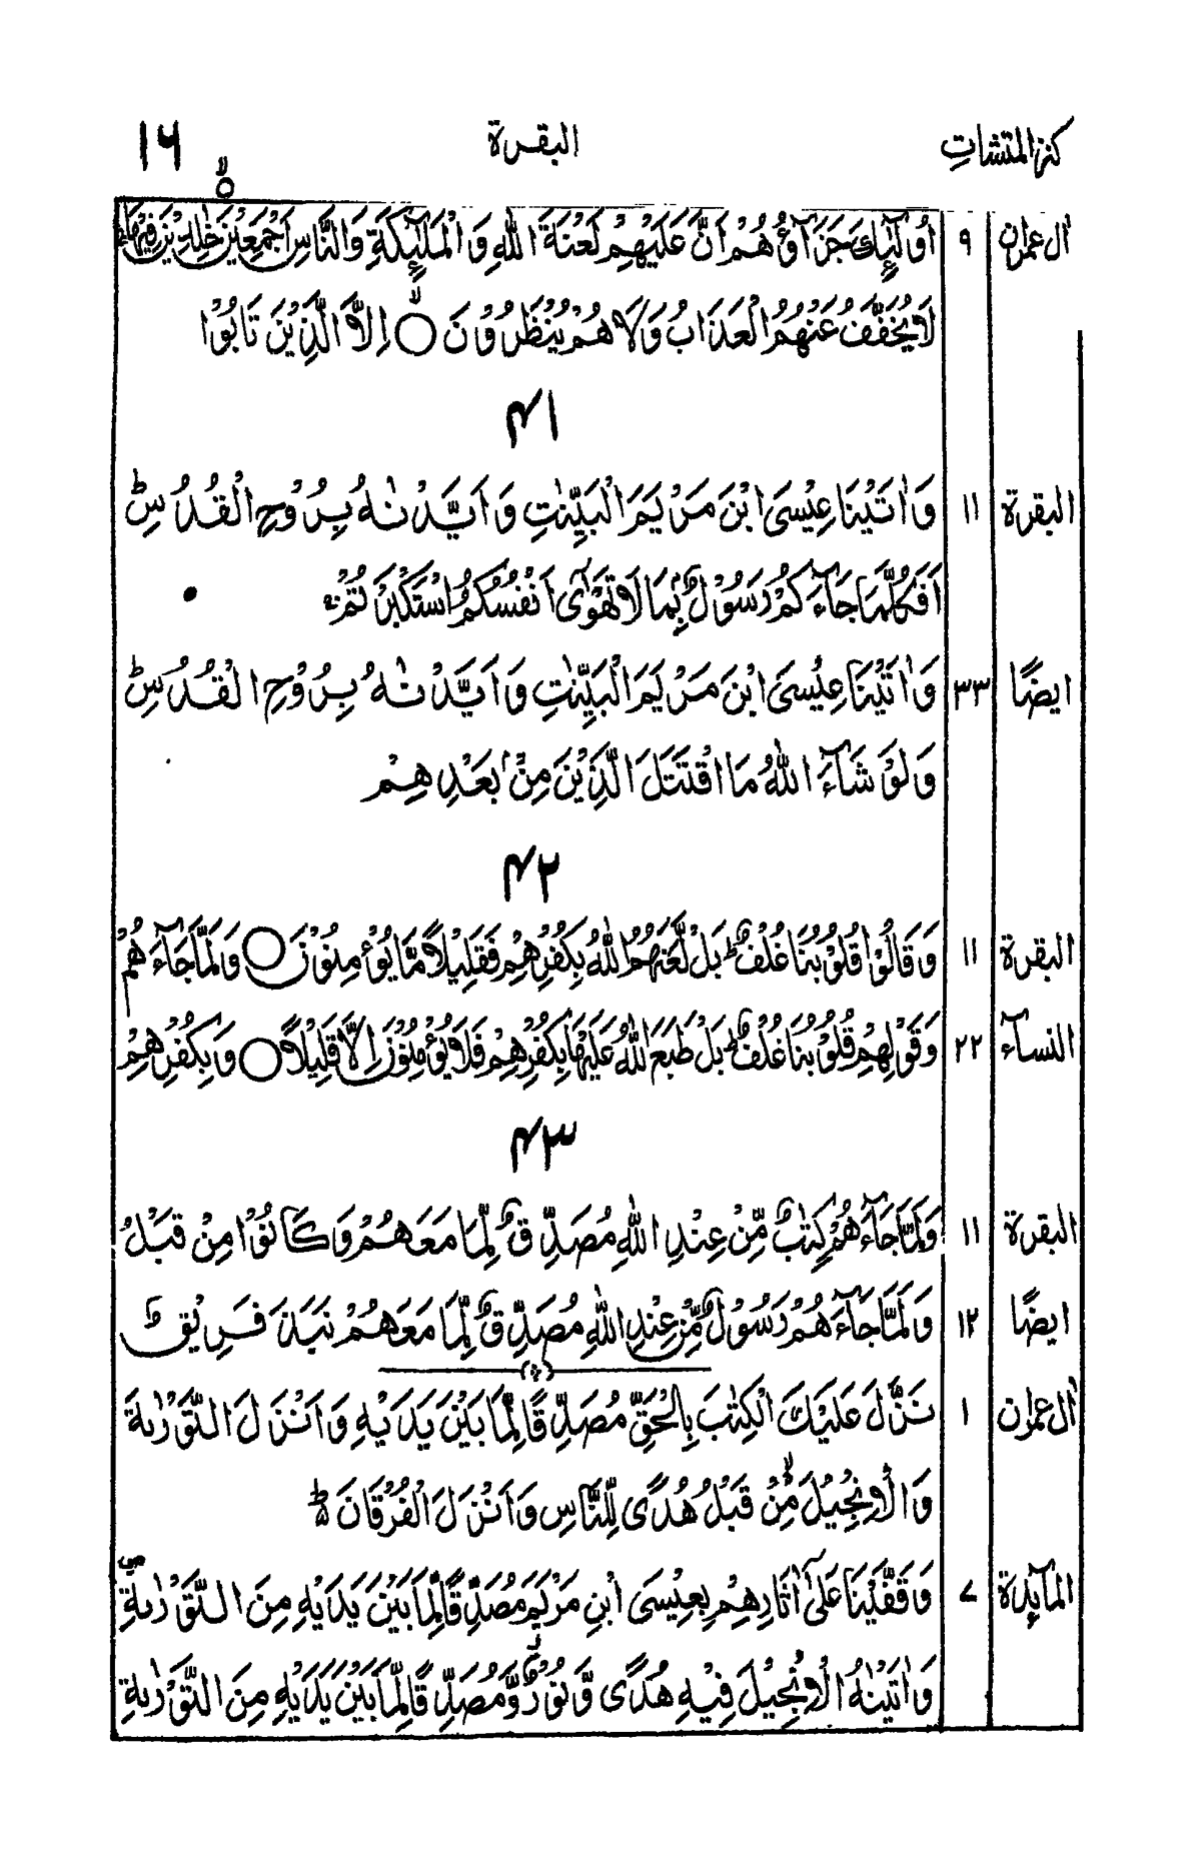 كنز المتشابهات البقرة ۱۶
اٰل عمران ۹ اُولٰٓئِكَ جَزَآؤُهُمْ اَنَّ عَلَيْهِمْ لَعْنَةَ اللّٰهِ وَالْمَلٰٓئِكَةِ وَالنَّاسِ اَجْمَعِيْنَ خٰلِدِيْنَ فِيْهَا ۙ
لَا يُخَفَّفُ عَنْهُمُ الْعَذَابُ وَلَا هُمْ يُنْظَرُوْنَ ۙ○ اِلَّا الَّذِيْنَ تَابُوْا
۴۱
البقرة ۱۱ وَاٰتَيْنَا عِيْسَى ابْنَ مَرْيَمَ الْبَيِّنٰتِ وَاَيَّدْنٰهُ بِرُوْحِ الْقُدُسِ ؕ
اَفَكُلَّمَا جَآءَكُمْ رَسُوْلٌۢ بِمَا لَا تَهْوٰٓى اَنْفُسُكُمُ اسْتَكْبَرْتُمْ ۚ
ايضًا ۳۳ وَاٰتَيْنَا عِيْسَى ابْنَ مَرْيَمَ الْبَيِّنٰتِ وَاَيَّدْنٰهُ بِرُوْحِ الْقُدُسِ ؕ
وَلَوْ شَآءَ اللّٰهُ مَا اقْتَتَلَ الَّذِيْنَ مِنْۢ بَعْدِهِمْ
۴۲
البقرة ۱۱ وَقَالُوْا قُلُوْبُنَا غُلْفٌ ؕ بَلْ لَّعَنَهُمُ اللّٰهُ بِكُفْرِهِمْ فَقَلِيْلًا مَّا يُؤْمِنُوْنَ ○ وَلَمَّا جَآءَهُمْ
النسآء ۲۲ وَقَوْلِهِمْ قُلُوْبُنَا غُلْفٌ ؕ بَلْ طَبَعَ اللّٰهُ عَلَيْهَا بِكُفْرِهِمْ فَلَا يُؤْمِنُوْنَ اِلَّا قَلِيْلًا ○ وَبِكُفْرِهِمْ
۴۳
البقرة ۱۱ وَلَمَّا جَآءَهُمْ كِتٰبٌ مِّنْ عِنْدِ اللّٰهِ مُصَدِّقٌ لِّمَا مَعَهُمْ وَكَانُوْا مِنْ قَبْلُ
ايضًا ۱۲ وَلَمَّا جَآءَهُمْ رَسُوْلٌ مِّنْ عِنْدِ اللّٰهِ مُصَدِّقٌ لِّمَا مَعَهُمْ نَبَذَ فَرِيْقٌ
اٰل عمران ۱ نَزَّلَ عَلَيْكَ الْكِتٰبَ بِالْحَقِّ مُصَدِّقًا لِّمَا بَيْنَ يَدَيْهِ وَاَنْزَلَ التَّوْرٰىةَ
وَالْاِنْجِيْلَ ۙ مِنْ قَبْلُ هُدًى لِّلنَّاسِ وَاَنْزَلَ الْفُرْقَانَ ؕ
المآئدة ۷ وَقَفَّيْنَا عَلٰٓى اٰثَارِهِمْ بِعِيْسَى ابْنِ مَرْيَمَ مُصَدِّقًا لِّمَا بَيْنَ يَدَيْهِ مِنَ التَّوْرٰىةِ ۪
وَاٰتَيْنٰهُ الْاِنْجِيْلَ فِيْهِ هُدًى وَّنُوْرٌ ۙ وَّمُصَدِّقًا لِّمَا بَيْنَ يَدَيْهِ مِنَ التَّوْرٰىةِ